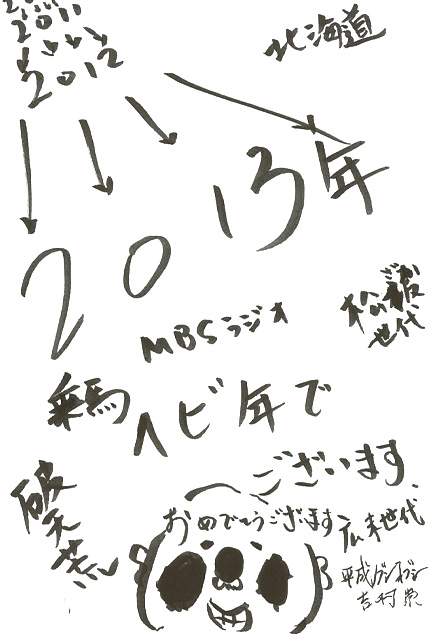 2011
2012
北海道
2013年
MBSラジオ
松坂
世代
乗馬
ヘビ年で
ございます
破天荒
おめでとうございます
広末世代
平成ノブシコブシ
吉村崇